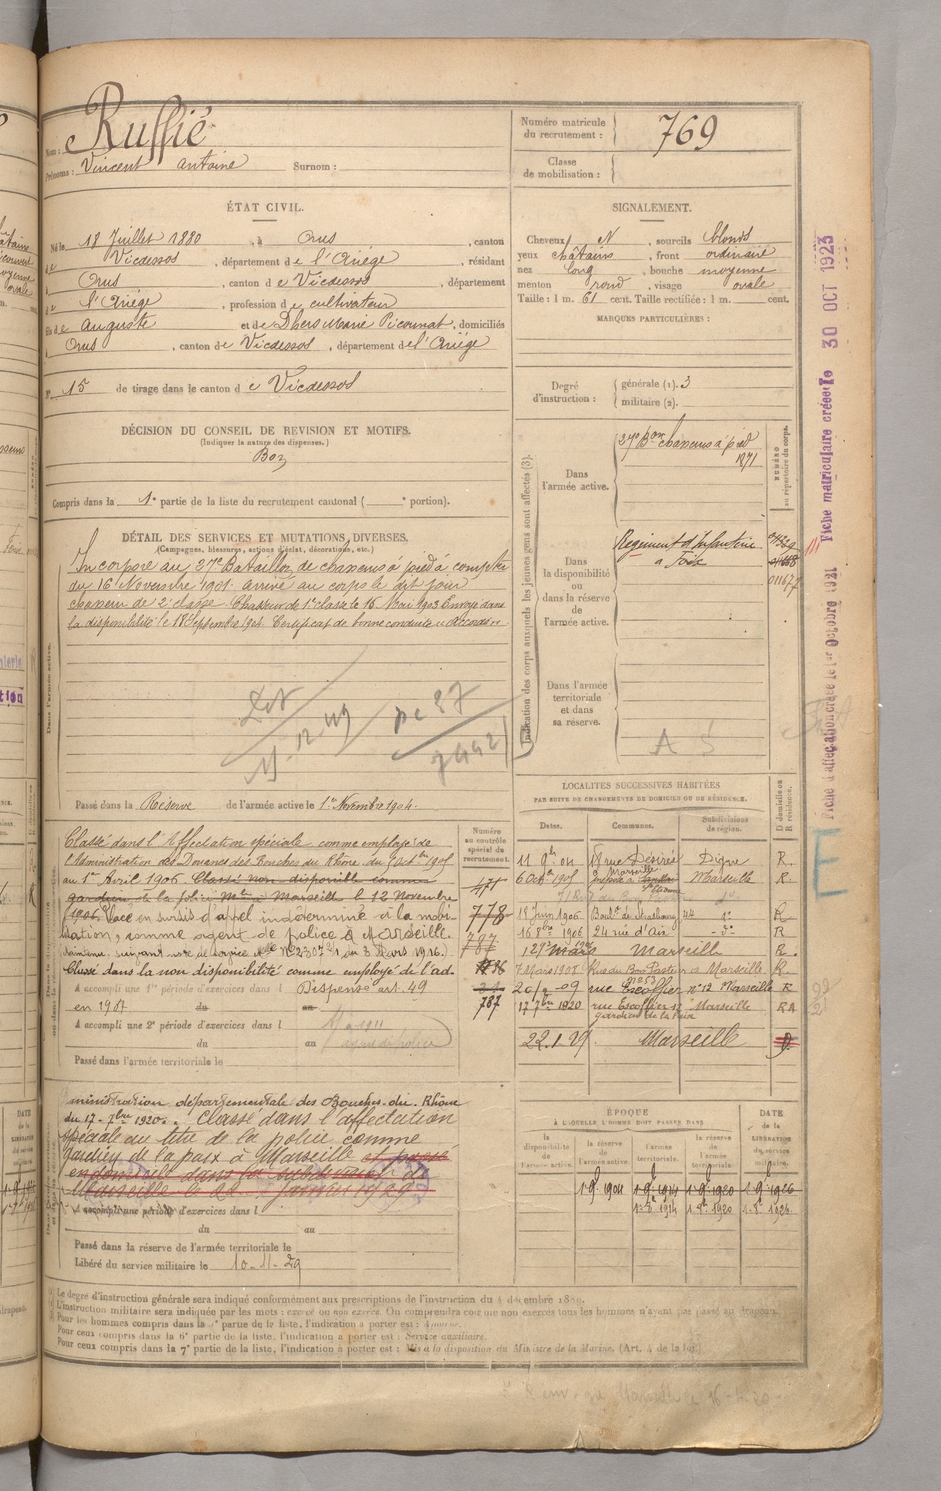 Nom : Ruffié
Prénoms : Vincent Antoine Surnom :
Numéro matricule du recrutement : 769
Classe de mobilisation :
ÉTAT CIVIL.
Né le 18 Juillet 1880, à Orus, canton
de Vicdessos, département de l'Ariège, résidant
à Orus, canton de Vicdessos, département
de l'Ariège, profession de cultivateur
fils de Auguste et de Dhers Marie Picounat, domiciliés
à Orus, canton de Vicdessos, département de l'Ariège
N° 15 de tirage dans le canton de Vicdessos
SIGNALEMENT.
Cheveux N, sourcils blonds
yeux châtains, front ordinaire
nez long, bouche moyenne
menton rond, visage ovale
Taille : 1 m. 61 cent. Taille rectifiée : 1 m. cent.
MARQUES PARTICULIÈRES :
DÉCISION DU CONSEIL DE REVISION ET MOTIFS.
(Indiquer la nature des dispenses.)
Bon
Compris dans la 1e partie de la liste du recrutement cantonal ( e portion).
Degré d'instruction : générale (1). 3
militaire (2).
DÉTAIL DES SERVICES ET MUTATIONS DIVERSES.
(Campagnes, blessures, actions d'éclat, décorations, etc.)
Incorporé au 27e Bataillon de chasseurs à pied à compter
du 16 Novembre 1901 arrivé au corps le dit jour
chasseur de 2e classe. Chasseur de 1e classe le 15 Mai 1903 Envoyé dans
la disponibilité le 18 Septembre 1904 Certificat de bonne conduite « Accordé »
Dans l'armée active.
Passé dans la Réserve de l'armée active le 1er Novembre 1904.
Indication des corps auxquels les jeunes gens sont affectés (3).
Dans l'armée active.
27e Bon chasseurs à pied
1871
NUMÉRO au répertoire du corps.
Dans la disponibilité ou dans la réserve de l'armée active.
Régiment d'Infanterie
à Foix
Dans l'armée territoriale et dans sa réserve.
A S
Fiche matriculaire créée le 30 OCT 1923
Fiche d'affectation créée le 1er Octobre 1921
Classé dans l'affectation spéciale comme employé de
l'Administration des Douanes des Bouches du Rhône du 7 octbre 1905
au 1er Avril 1906 Classé non disponible comme
gardien de la police Mle à Marseille le 12 Novembre
1906. Placé en sursis d'appel indéterminé à la mobi-
sation, comme agent de police à Marseille.
Classé dans la non disponibilité comme employé de l'ad-
A accompli une 1re période d'exercices dans l Dispensé art. 49
en 1907 du au
A accompli une 2e période d'exercices dans l
du au
Passé dans l'armée territoriale le
Numéro au contrôle spécial du recrutement.
471
778
787
787
LOCALITÉS SUCCESSIVES HABITÉES
PAR SUITE DE CHANGEMENTS DE DOMICILE OU DE RÉSIDENCE.
Dates. Communes. Subdivisions de région. D domicile ou R résidence.
11 9bre 04 18 rue Désirée Digne R.
6 Octbre 1905 à Marseille Marseille R.
18 Juin 1906 Boulrd de Strasbourg 44 do R
1906 24 rue d'Air do R
Marseille R.
7 Mars 1908 Rue du Bon Pasteur à Marseille R.
20/2-09 rue Escoffier no 12 Marseille R
17 7bre 1920 rue Escoffier 12 Marseille RA
gardien de la Paix
22.1.29 Marseille D.
ministration départementale des Bouches-du-Rhône
du 17-7bre 1920. Classé dans l'affectation
spéciale au titre de la police comme
gardien de la paix à Marseille et passé
en domicile dans la subdivision de
Marseille le 22 Janvier 1929
A accompli une période d'exercices dans l
du au
Passé dans la réserve de l'armée territoriale le
Libéré du service militaire le 10-11-29
ÉPOQUE
À LAQUELLE L'HOMME DOIT PASSER DANS
DATE de la LIBÉRATION du service militaire.
la disponibilité de l'armée active. la réserve de l'armée active. l'armée territoriale. la réserve de l'armée territoriale.
1-9bre 1904 1-9bre 1914 1-9bre 1920 1-9bre 1926
1-8bre 1914 1-8bre 1920 1-8bre 1926
Le degré d'instruction générale sera indiqué conformément aux prescriptions de l'instruction du 4 décembre 1889.
L'instruction militaire sera indiquée par les mots : exercé ou non exercé. On comprendra comme non exercés tous les hommes n'ayant pas passé au drapeau.
Pour ceux compris dans la 6e partie de la liste, l'indication à porter est : Service auxiliaire.
Pour ceux compris dans la 7e partie de la liste, l'indication à porter est : Mis à la disposition du Ministre de la Marine. (Art. 4 de la loi)